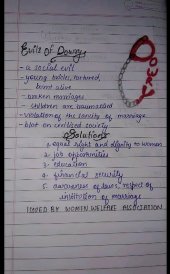 Evils of Dowry
- a social evil
- young tortured,
burnt alive
- broken marriages
- children are traumatised
- violation of the sanctity of marriage
- blot on civilised society
Solutions
1. equal right and dignity to women
2. job opportunities
3. education
4. financial security
5. awareness of laws, respect of
institution of marriage
ISSUED BY WOMEN WELFARE ASSOCIATION
DOWRY